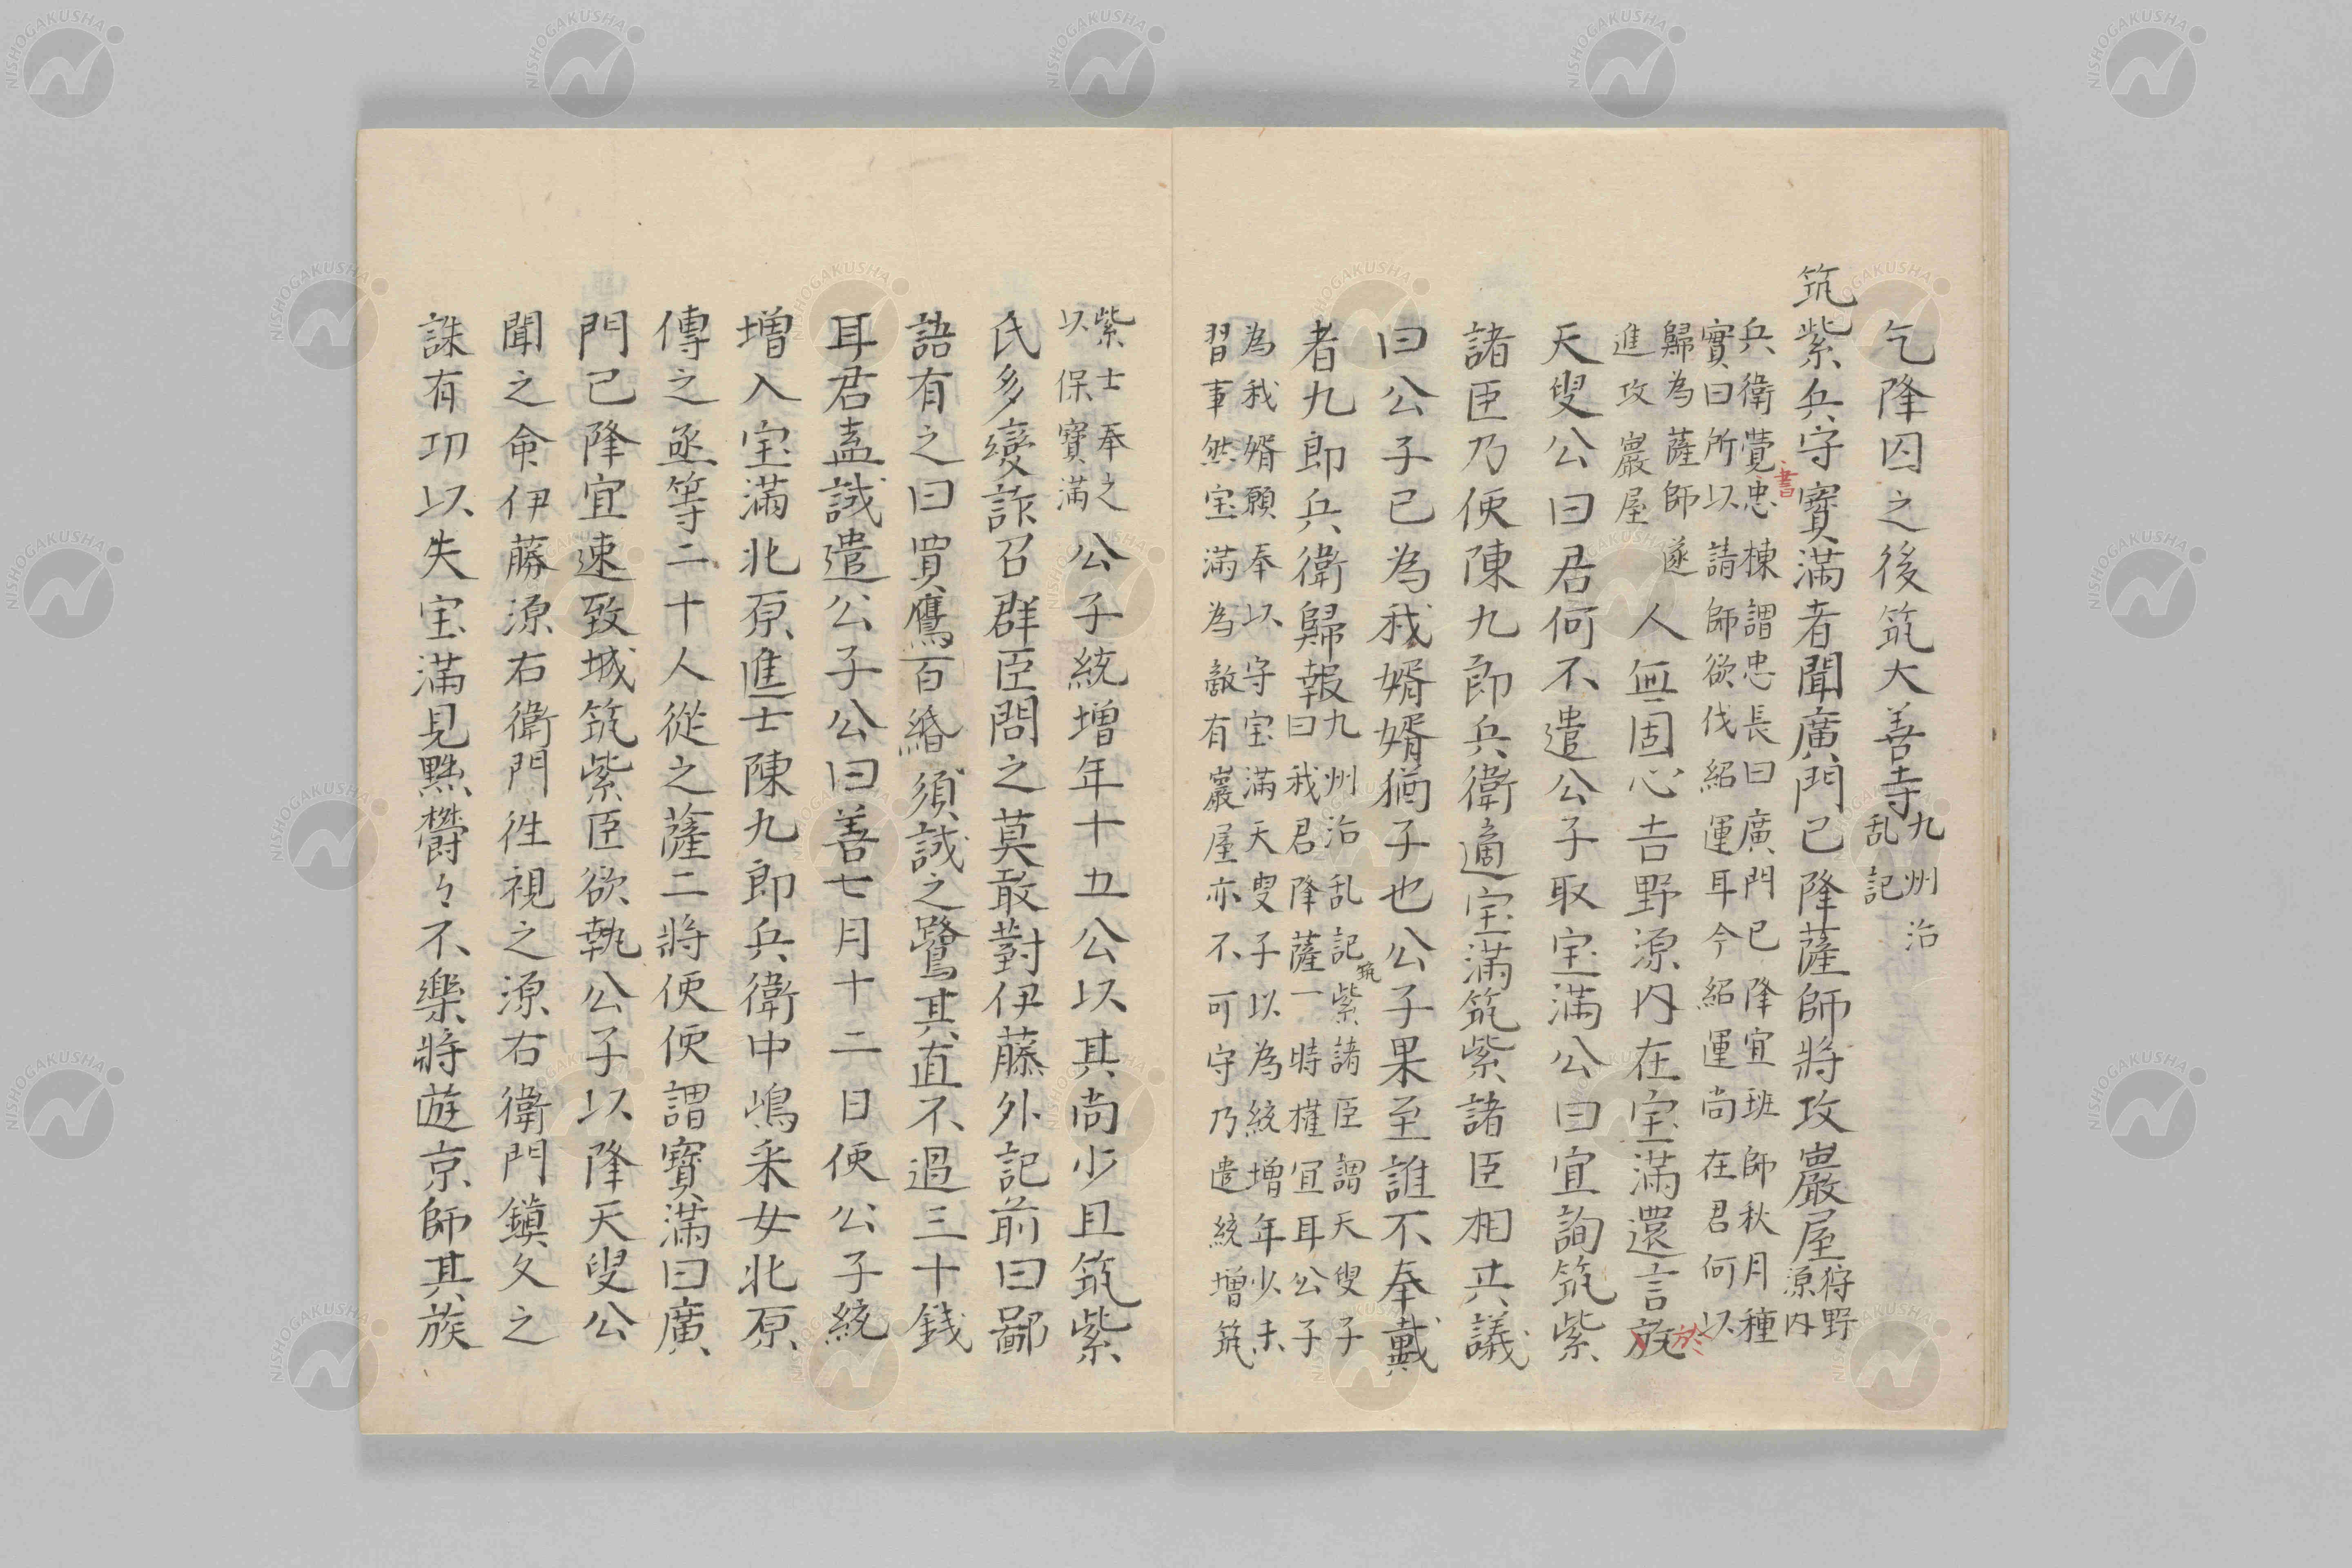 乞降囚之後筑大善寺九州治乱記
筑紫兵守寳滿者聞廣門已降薩師將攻巖屋狩野源内
兵衛覺書忠棟謂忠長曰廣門已降宜班師秋月種
實曰所以請師欲伐紹運耳今紹運尚在君何以
歸為薩師遂
進攻巖屋
人無固心吉野源内在宝滿還言於
天叟公曰君何不遣公子取宝滿公曰宜詢筑紫
諸臣乃使陳九郎兵衛適宝滿筑紫諸臣相共議
曰公子已為我婿婿猶子也公子果至誰不奉戴
者九郎兵衛歸報
九州治乱記筑紫諸臣謂天叟子
曰我君降薩一時權宜耳公子
為我婿願奉以守宝滿天叟子以為統增年少未
習事然宝滿為敵有巖屋亦不可守乃遣統增筑
紫士奉之
以保寳滿
公子統增年十五公以其尚少且筑紫
氏多變詐召群臣問之莫敢對伊藤外記前曰鄙
語有之曰買鷹百緡須誠之鷺其直不過三十錢
耳君盍誠遣公子公曰善七月十二日使公子統
增入宝滿北原進士陳九郎兵衛中嶋采女北原
傳之丞等二十人從之薩二將使使謂寳滿曰廣
門已降宜速致城筑紫臣欲執公子以降天叟公
聞之命伊藤源右衛門徃視之源右衛門鎮久之
誅有功以失宝滿見黜欝々不樂將遊京師其族